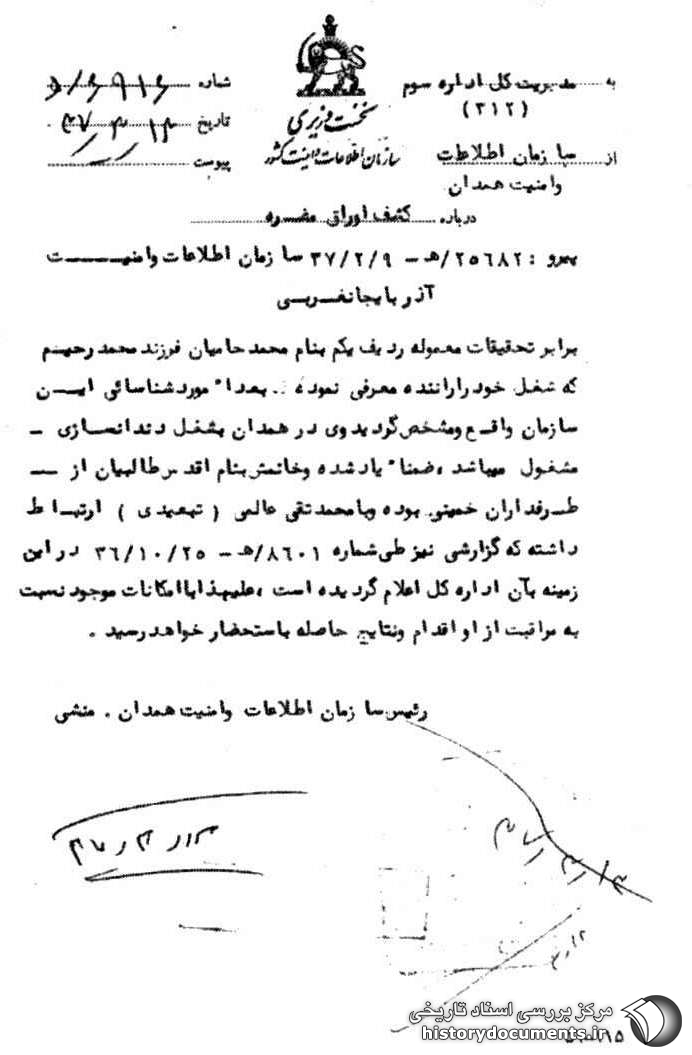 به مدیریت کل اداره سوم
(۳۱۲)
از سازمان اطلاعات
وامنیت همدان
نخست وزیری
سازمان اطلاعات و امنیت کشور
شماره
تاریخ
پیوست
درباره کشف اوراق مضره
پیرو : ۲۵۶۸۲/هـ - ۳۷/۲/۹ سازمان اطلاعات وامنیت
آذربایجانغربی
برابر تحقیقات معموله ردیف یکم بنام محمد حامیان فرزند محمد رحیم
که شغل خود را راننده معرفی نموده . بعداً مورد شناسائی این
سازمان واقع ومشخص گردید وی در همدان بشغل دندانسازی -
مشغول میباشد ، ضمناً یاد شده وخانمش بنام اقدس طالبیان از -
طرفداران خمینی بوده وبا محمد تقی عالمی ( تبعیدی ) ارتباط
داشته که گزارشی نیز طی شماره ۸۶۰۱/هـ - ۳۶/۱۰/۲۵ در این
زمینه بآن اداره کل اعلام گردیده است ، علیهذا باامکانات موجود نسبت
به مراقبت از او اقدام ونتایج حاصله باستحضار خواهد رسید .
رئیس سازمان اطلاعات وامنیت همدان . منشی
مرکز بررسی اسناد تاریخی
historydocuments.ir